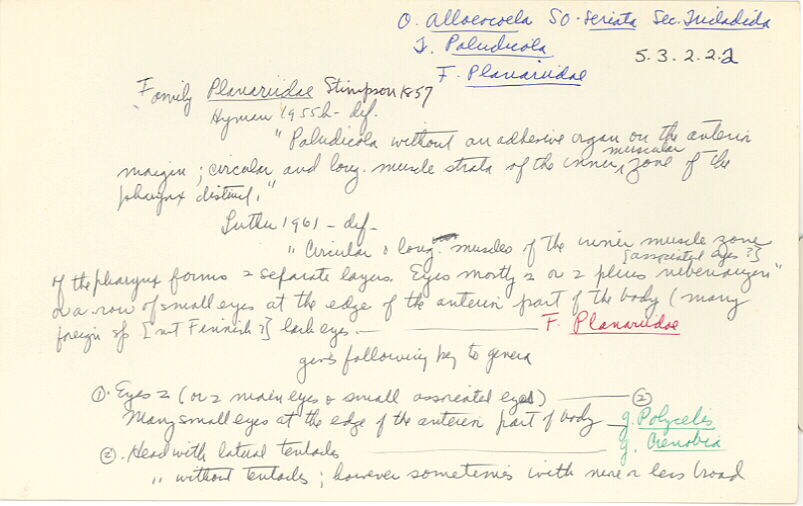 O. Alloeocoela SO. Seriata Sec. Tricladida
T. Paludicola
5.3.2.2.2
F. Planariidae
Family Planariidae Stimpson 1857
Hyman 1955h - def.
"Paludicola without an adhesive organ on the anterior
margin; circular and long. muscle strata of the inner muscular zone of the
pharynx distinct."
Luther 1961 - def -
"Circular & long. muscles of the inner muscle zone
of the pharynx forms 2 separate layers. Eyes mostly 2 or 2 plus nebenaugen" [associated eyes?]
or a row of small eyes at the edge of the anterior part of the body (many
foreign sp [not Finnish?] lack eyes — F. Planariidae
gives following key to genera
①. Eyes 2 (or 2 main eyes & small associated eyes) — ②
Many small eyes at the edge of the anterior part of body — g. Polycelis
②. Head with lateral tentacles — g. Crenobia
" without tentacles; however sometimes with more or less broad